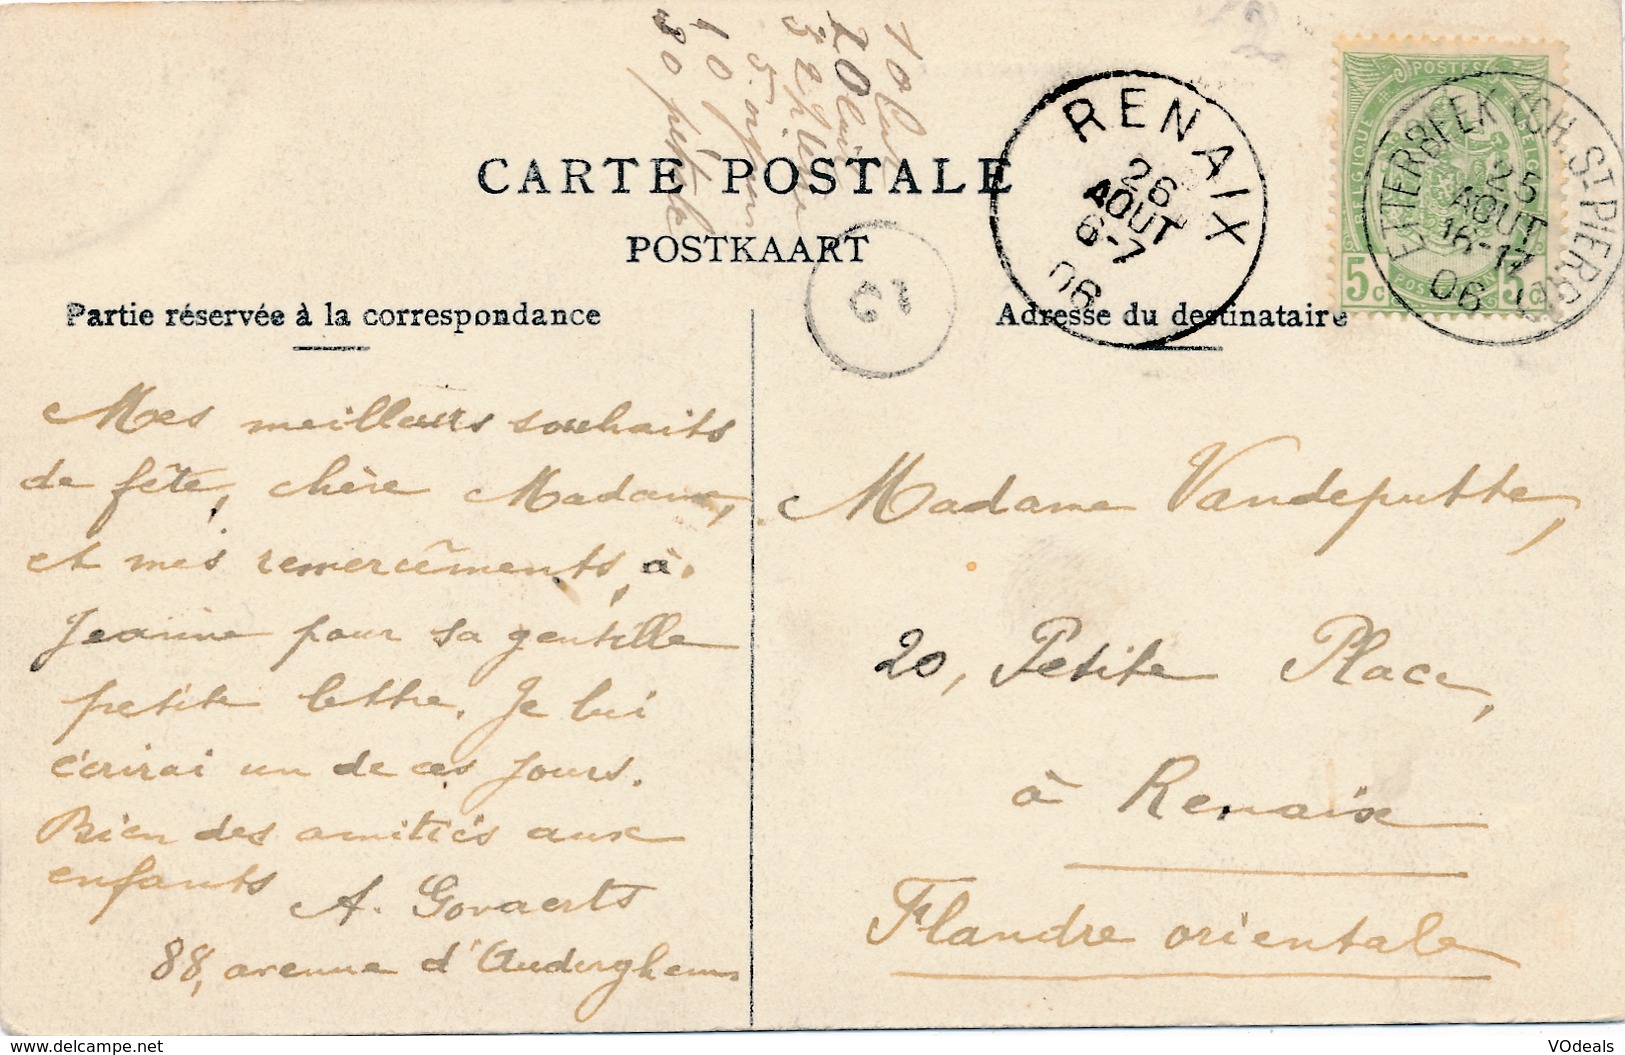 CARTE POSTALE
POSTKAART
Partie réservée à la correspondance
Mes meilleurs souhaits
de fête, chère Madame,
et mes remercîments à
Jeanne pour sa gentille
petite lettre. Je lui
écrirai un de ces jours.
Bien des amitiés aux
enfants
A. Govaerts
88, avenue d'Auderghem
Adresse du destinataire
Madame Vandeputte,
20, Petite Place,
à Renaix
Flandre orientale
RENAIX
26
AOUT
6-7
06
ETTERBEEK (CH. ST PIERRE)
25
AOUT
16-17
06
POSTES
BELGIQUE
BELGIË
5c
5c
POSTERIJEN
10
20
5
10
30
www.delcampe.net
VOdeals